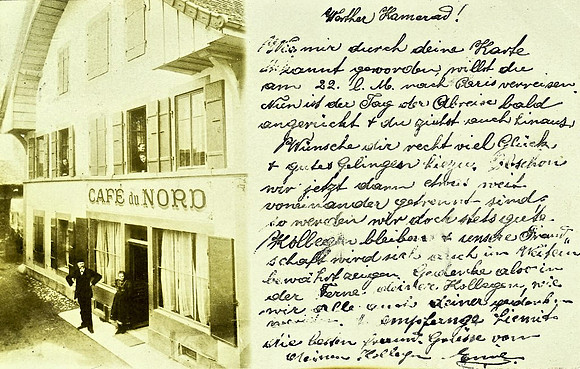 CAFÉ du NORD
Werther Kamerad!
Wie mir durch deine Karte
bekannt geworden, willst du
am 22. l. M. nach Paris verreisen.
Nun ist der Tag der Abreise bald
angerückt & du ziehst auch hinaus.
Wünsche dir recht viel Glück
& gutes Gelingen hiezu.
wir jetzt dann weit
voneinander getrennt sind,
so werden wir doch stets gute
Kollegen bleiben & unsere Freund-
schaft wird sich auch im
bewährt zeigen. Gedenke also in
der Ferne deiner Kollegen, wie
wir alle auch deiner
empfange hiemit
die besten Grüsse von
deinem Kollegen